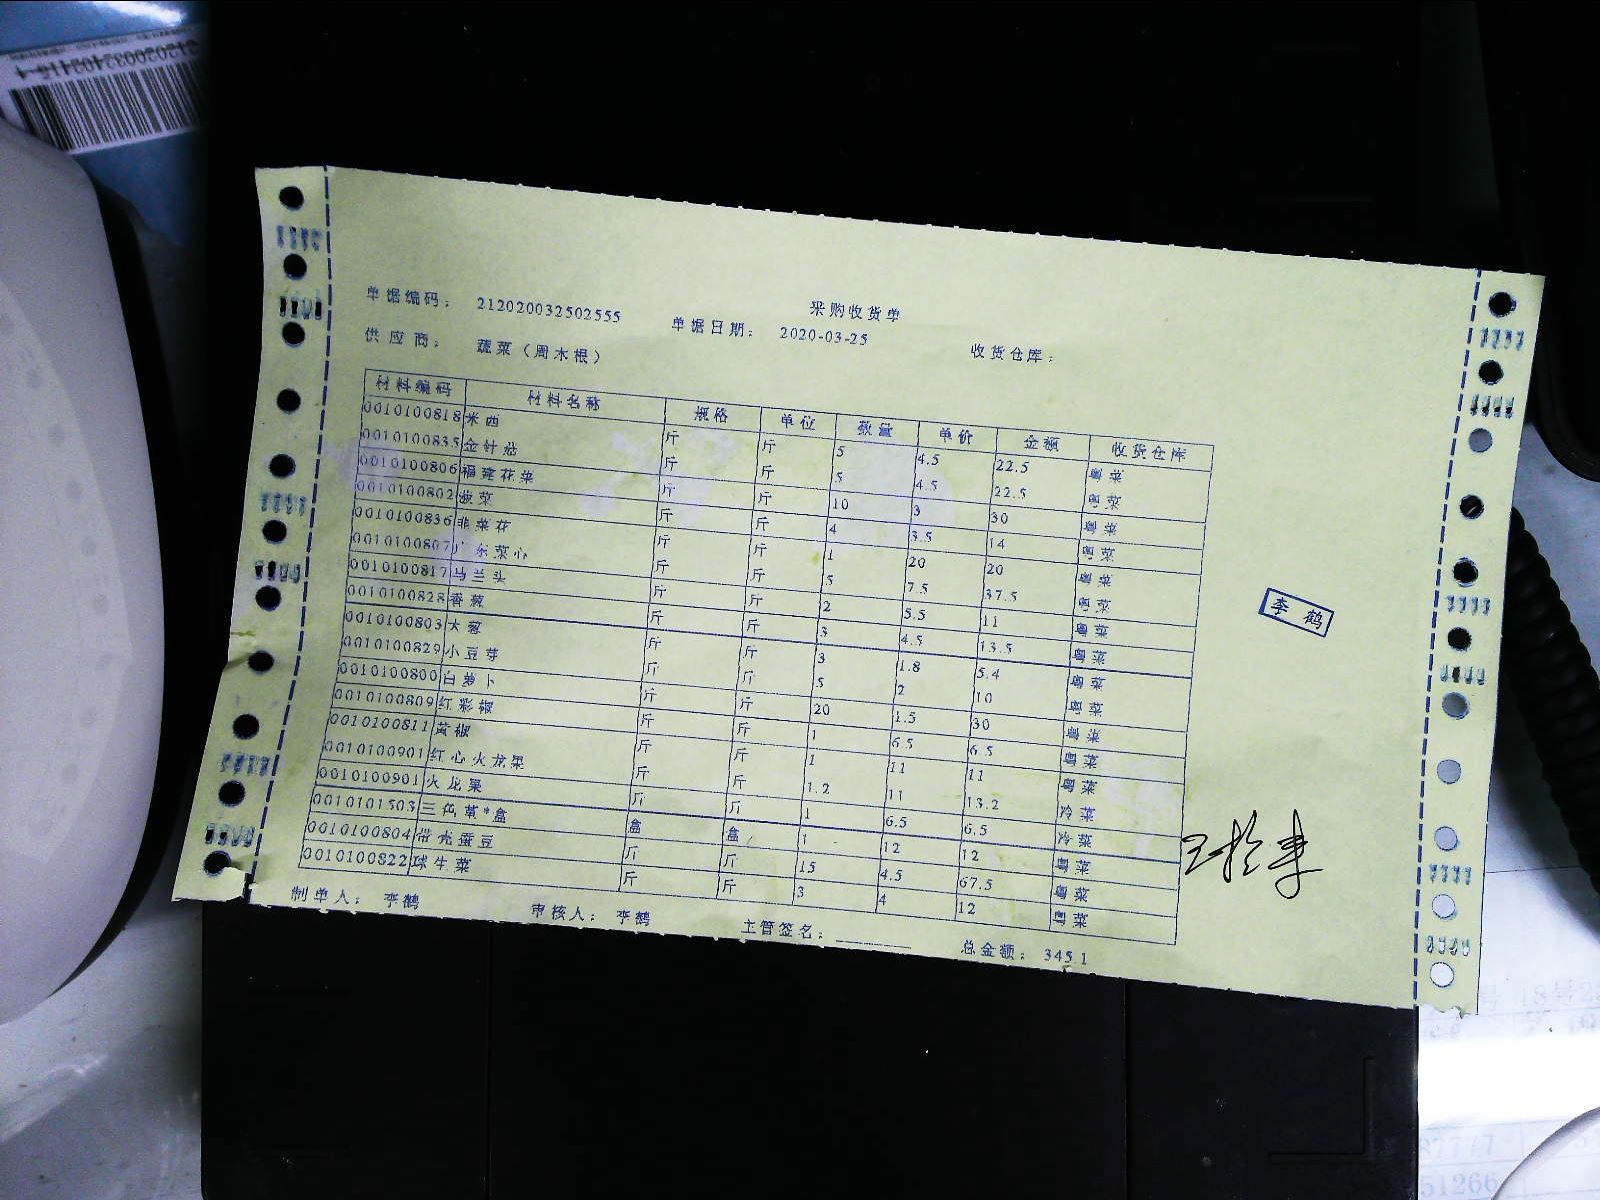 采购收货单
单据编码： 212020032502555 单据日期： 2020-03-25 收货仓库：
供应商： 蔬菜（周木根）
材料编码 材料名称 规格 单位 数量 单价 金额 收货仓库
0010100818 米西 斤 斤 5 4.5 22.5 粤菜
0010100835 金针菇 斤 斤 5 4.5 22.5 粤菜
0010100806 福建花菜 斤 斤 10 3 30 粤菜
0010100802 菠菜 斤 斤 4 3.5 14 粤菜
0010100836 韭菜花 斤 斤 1 20 20 粤菜
0010100807 广东菜心 斤 斤 5 7.5 37.5 粤菜
0010100817 马兰头 斤 斤 2 5.5 11 粤菜
0010100828 香葱 斤 斤 3 4.5 13.5 粤菜
0010100803 大葱 斤 斤 3 1.8 5.4 粤菜
0010100829 小豆芽 斤 斤 5 2 10 粤菜
0010100800 白萝卜 斤 斤 20 1.5 30 粤菜
0010100809 红彩椒 斤 斤 1 6.5 6.5 粤菜
0010100811 黄椒 斤 斤 1 11 11 粤菜
0010100901 红心火龙果 斤 斤 1.2 11 13.2 冷菜
0010100901 火龙果 斤 斤 1 6.5 6.5 冷菜
0010101503 三色堇*盒 盒 盒 1 12 12 粤菜
0010100804 带壳蚕豆 斤 斤 15 4.5 67.5 粤菜
0010100822 球生菜 斤 斤 3 4 12 粤菜
制单人： 李鹤 审核人： 李鹤 主管签名： 总金额： 345.1
李鹤